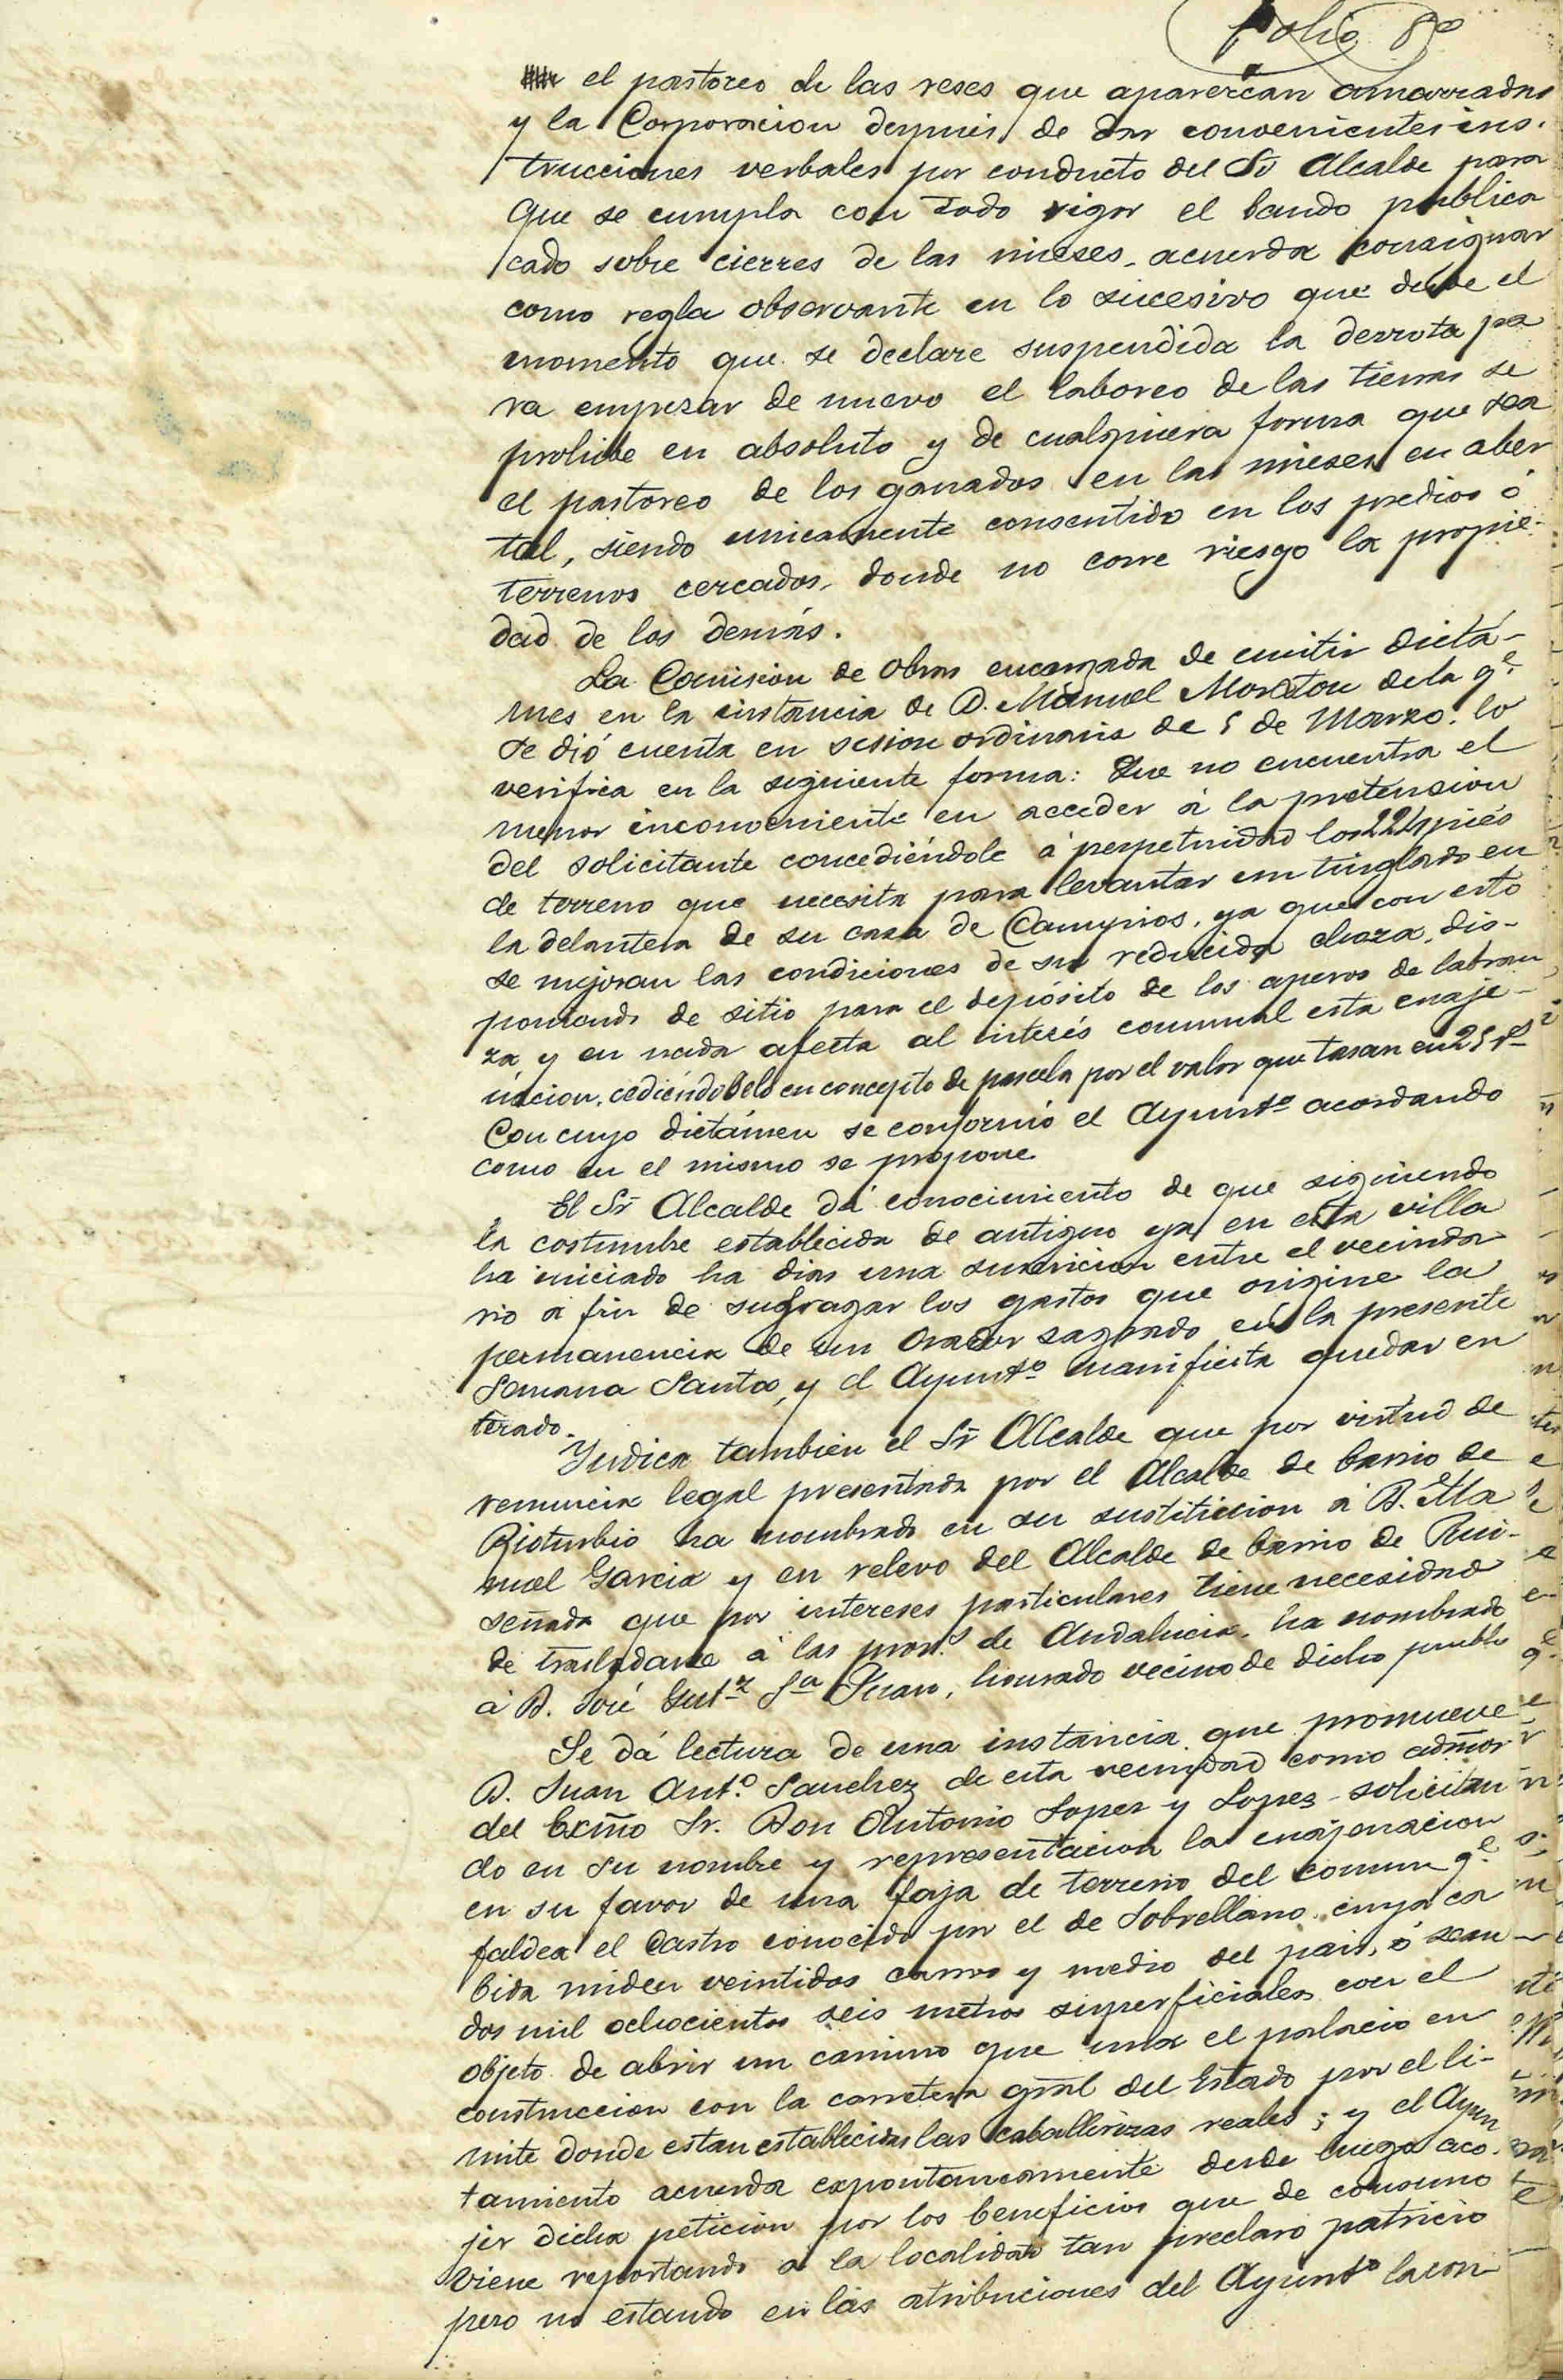 folio 8º
el pastoreo de las reses que aparezcan amarradas
y la Corporacion despues de dar convenientes ins-
trucciones verbales por conducto del Sr Alcalde para
que se cumpla con todo rigor el bando publica
cado sobre cierres de las mieses, acuerda consignar
como regla observante en lo sucesivo que desde el
momento que se declare suspendida la derrota pa
ra empezar de nuevo el laboreo de las tierras se
prohibe en absoluto y de cualquiera forma que sea
el pastoreo de los ganados en las mieses en aber
tal, siendo unicamente consentido en los predios ó
terrenos cercados, donde no corre riesgo la propie-
dad de los demás.
La Comision de obras encargada de emitir dictá-
mes en la instancia de D. Manuel Moraton de la q.e
se dió cuenta en sesion ordinaria de 5 de Marzo, lo
verifica en la siguiente forma: Que no encuentra el
menor inconveniente en acceder á la pretension
del solicitante concediéndole á perpetuidad los 224 piés
de terreno que necesita para levantar un tinglado en
la delantera de su casa de Campios, ya que con esto
se mejoran las condiciones de su reducida choza, dis-
poniendo de sitio para el depósito de los aperos de labran
za, y en nada afecta al interés comunal esta enaje-
nacion, cediéndoselo en concepto de parcela por el valor que tasan en 25 p.s
Con cuyo dictámen se conformó el Ayuntº acordando
como en el mismo se propone
El Sr Alcalde dá conocimiento de que siguiendo
la costumbre establecida de antiguo ya en esta villa
ha iniciado ha dias una suscricion entre el vecinda
rio a fin de sufragar los gastos que origine la
permanencia de un Orador sagrado en la presente
Semana Santa, y el Ayuntº manifiesta quedar en
terado.
Yndica tambien el Sr Alcalde que por virtud de
renuncia legal presentada por el Alcalde de barrio de
Rioturbio ha nombrado en su sustitucion á D. Ma
nuel Garcia y en relevo del Alcalde de barrio de Rui-
señada que por intereses particulares tiene necesidad
de trasladarse á las prov.s de Andalucia, ha nombrado
á D. José Gutz Sn Juan, honrado vecino de dicho pueblo
Se dá lectura de una instancia que promueve
D. Juan Ant.º Sanchez de esta vecindad como admor
del Excmo Sr. Don Antonio Lopez y Lopez solicitan
do en su nombre y representacion la enajenacion
en su favor de una faja de terreno del comun q.e
faldea el Castro conocido por el de Sobrellano, cuya ca
bida miden veintidos carros y medio del pais, ó sean
dos mil ochocientos seis metros superficiales con el
objeto de abrir un camino que una el palacio en
construccion con la carretera gral del Estado por el li-
mite donde estan establecidas las caballerizas reales; y el Ayun
tamiento acuerda expontaneamente desde luego aco-
jer dicha peticion por los beneficios que de consuno
viene reportando á la localidad tan preclaro patricio
pero no estando en las atribuciones del Ayuntº la con-